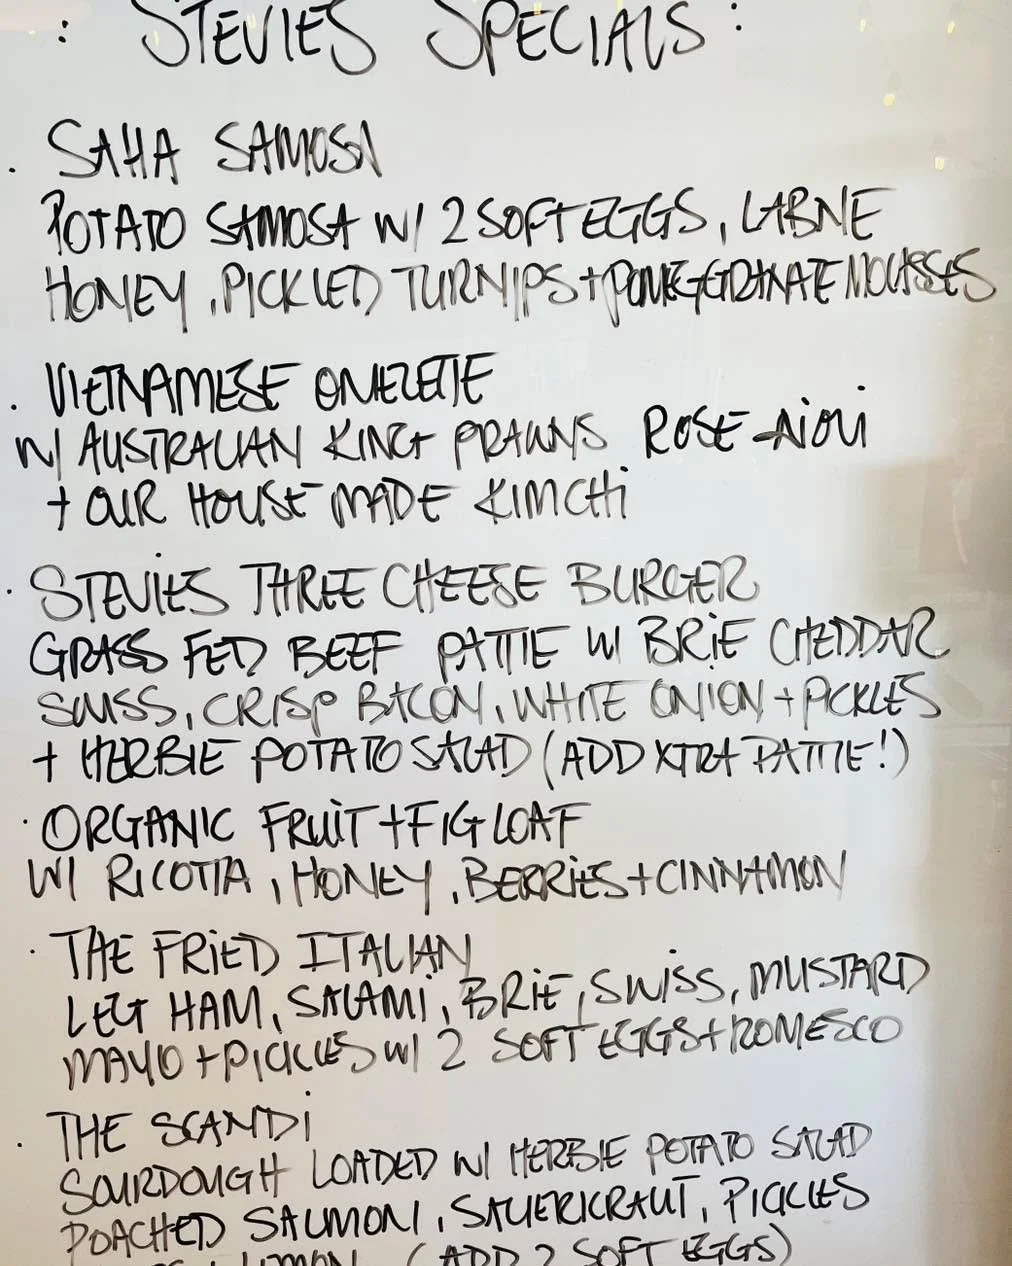 : STEVIES SPECIALS :
. SAHA SAMOSA
POTATO SAMOSA W/ 2 SOFT EGGS, LABNE
HONEY, PICKLED TURNIPS + POMEGERANATE MOLASSES
. VIETNAMESE OMELETTE
W/ AUSTRALIAN KING PRAWNS ROSE AIOLI
+ OUR HOUSE MADE KIMCHI
. STEVIES THREE CHEESE BURGER
GRASS FED BEEF PATTIE W/ BRIE CHEDDAR
SWISS, CRISP BACON, WHITE ONION + PICKLES
+ HERBIE POTATO SALAD (ADD XTRA PATTIE!)
. ORGANIC FRUIT + FIG LOAF
W/ RICOTTA, HONEY, BERRIES + CINNAMON
. THE FRIED ITALIAN
LEG HAM, SALAMI, BRIE, SWISS, MUSTARD
MAYO + PICKLES W/ 2 SOFT EGGS + ROMESCO
. THE SCANDI
SOURDOUGH LOADED W/ HERBIE POTATO SALAD
POACHED SALMON, SAUERKRAUT, PICKLES
(ADD 2 SOFT EGGS)